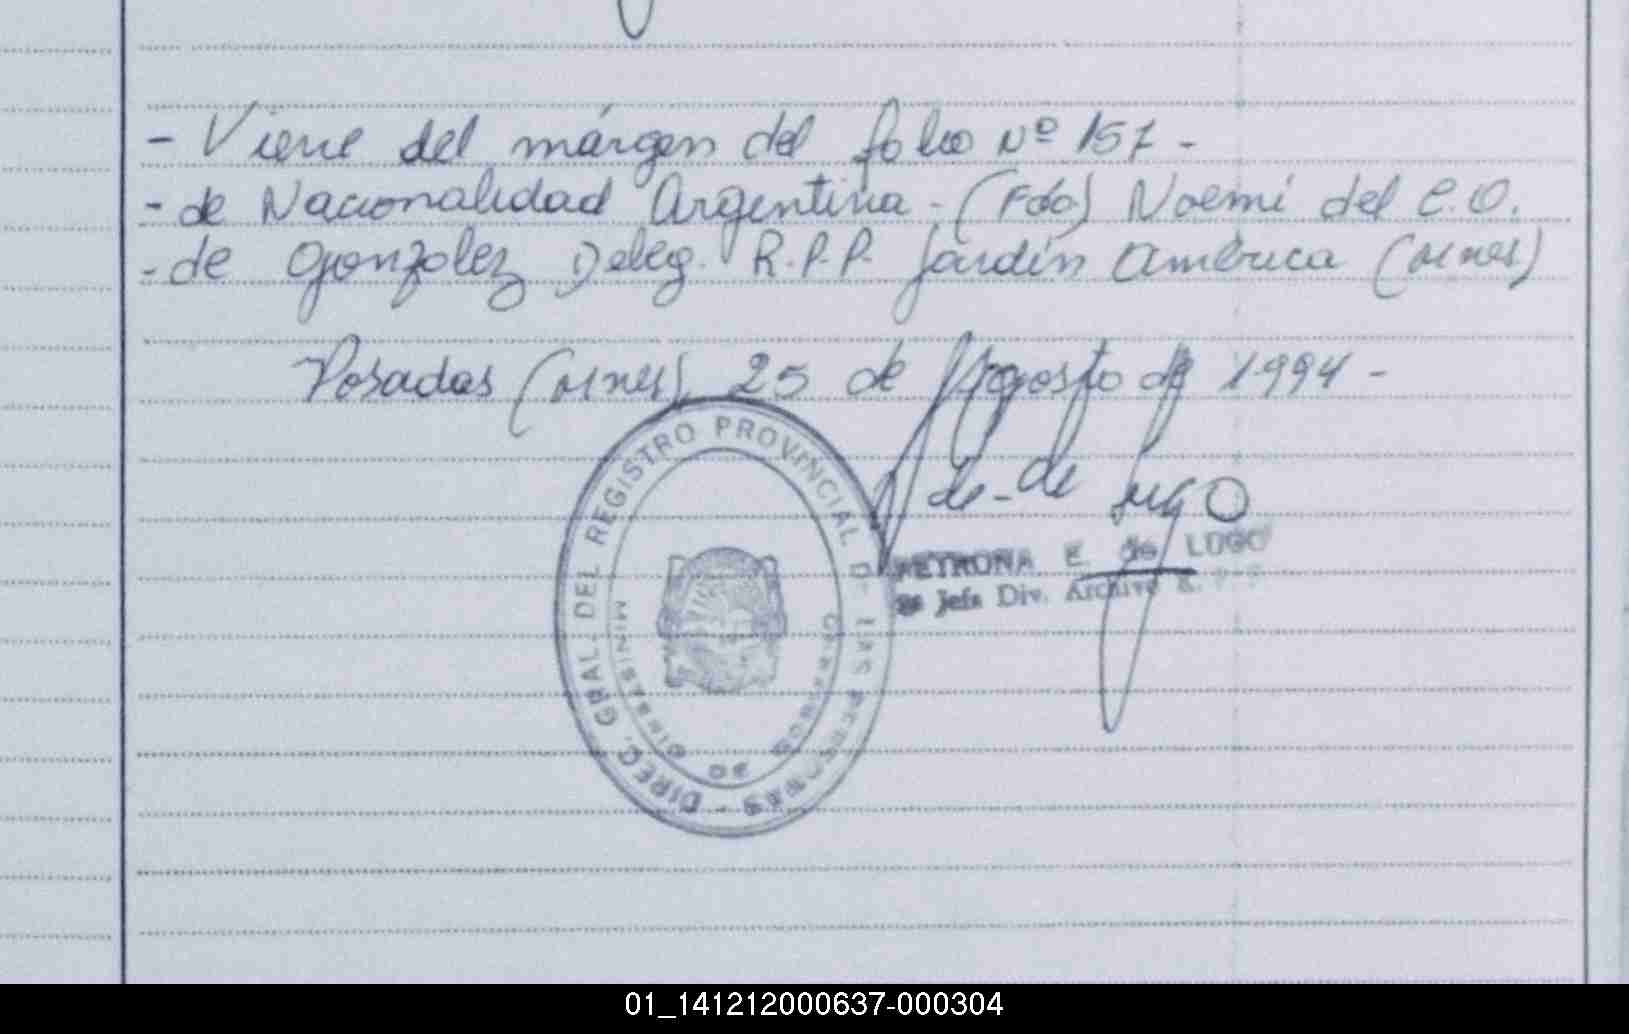 - Viene del márgen del folio Nº 157 -
- de Nacionalidad Argentina - (Fdo) Noemí del C.O.
- de Gonzalez Deleg. R.P.P. Jardín América (Mnes)
Posadas (Mnes) 25 de Agosto de 1994 -
DIREC. GRAL. DEL REGISTRO PROVINCIAL D LAS PERSONAS -
MINISTERIO DE GOBIERNO
de - de Lugo
PETRONA E. de LUGO
Jefe Div. Archivo R. P. P.
01_141212000637-000304